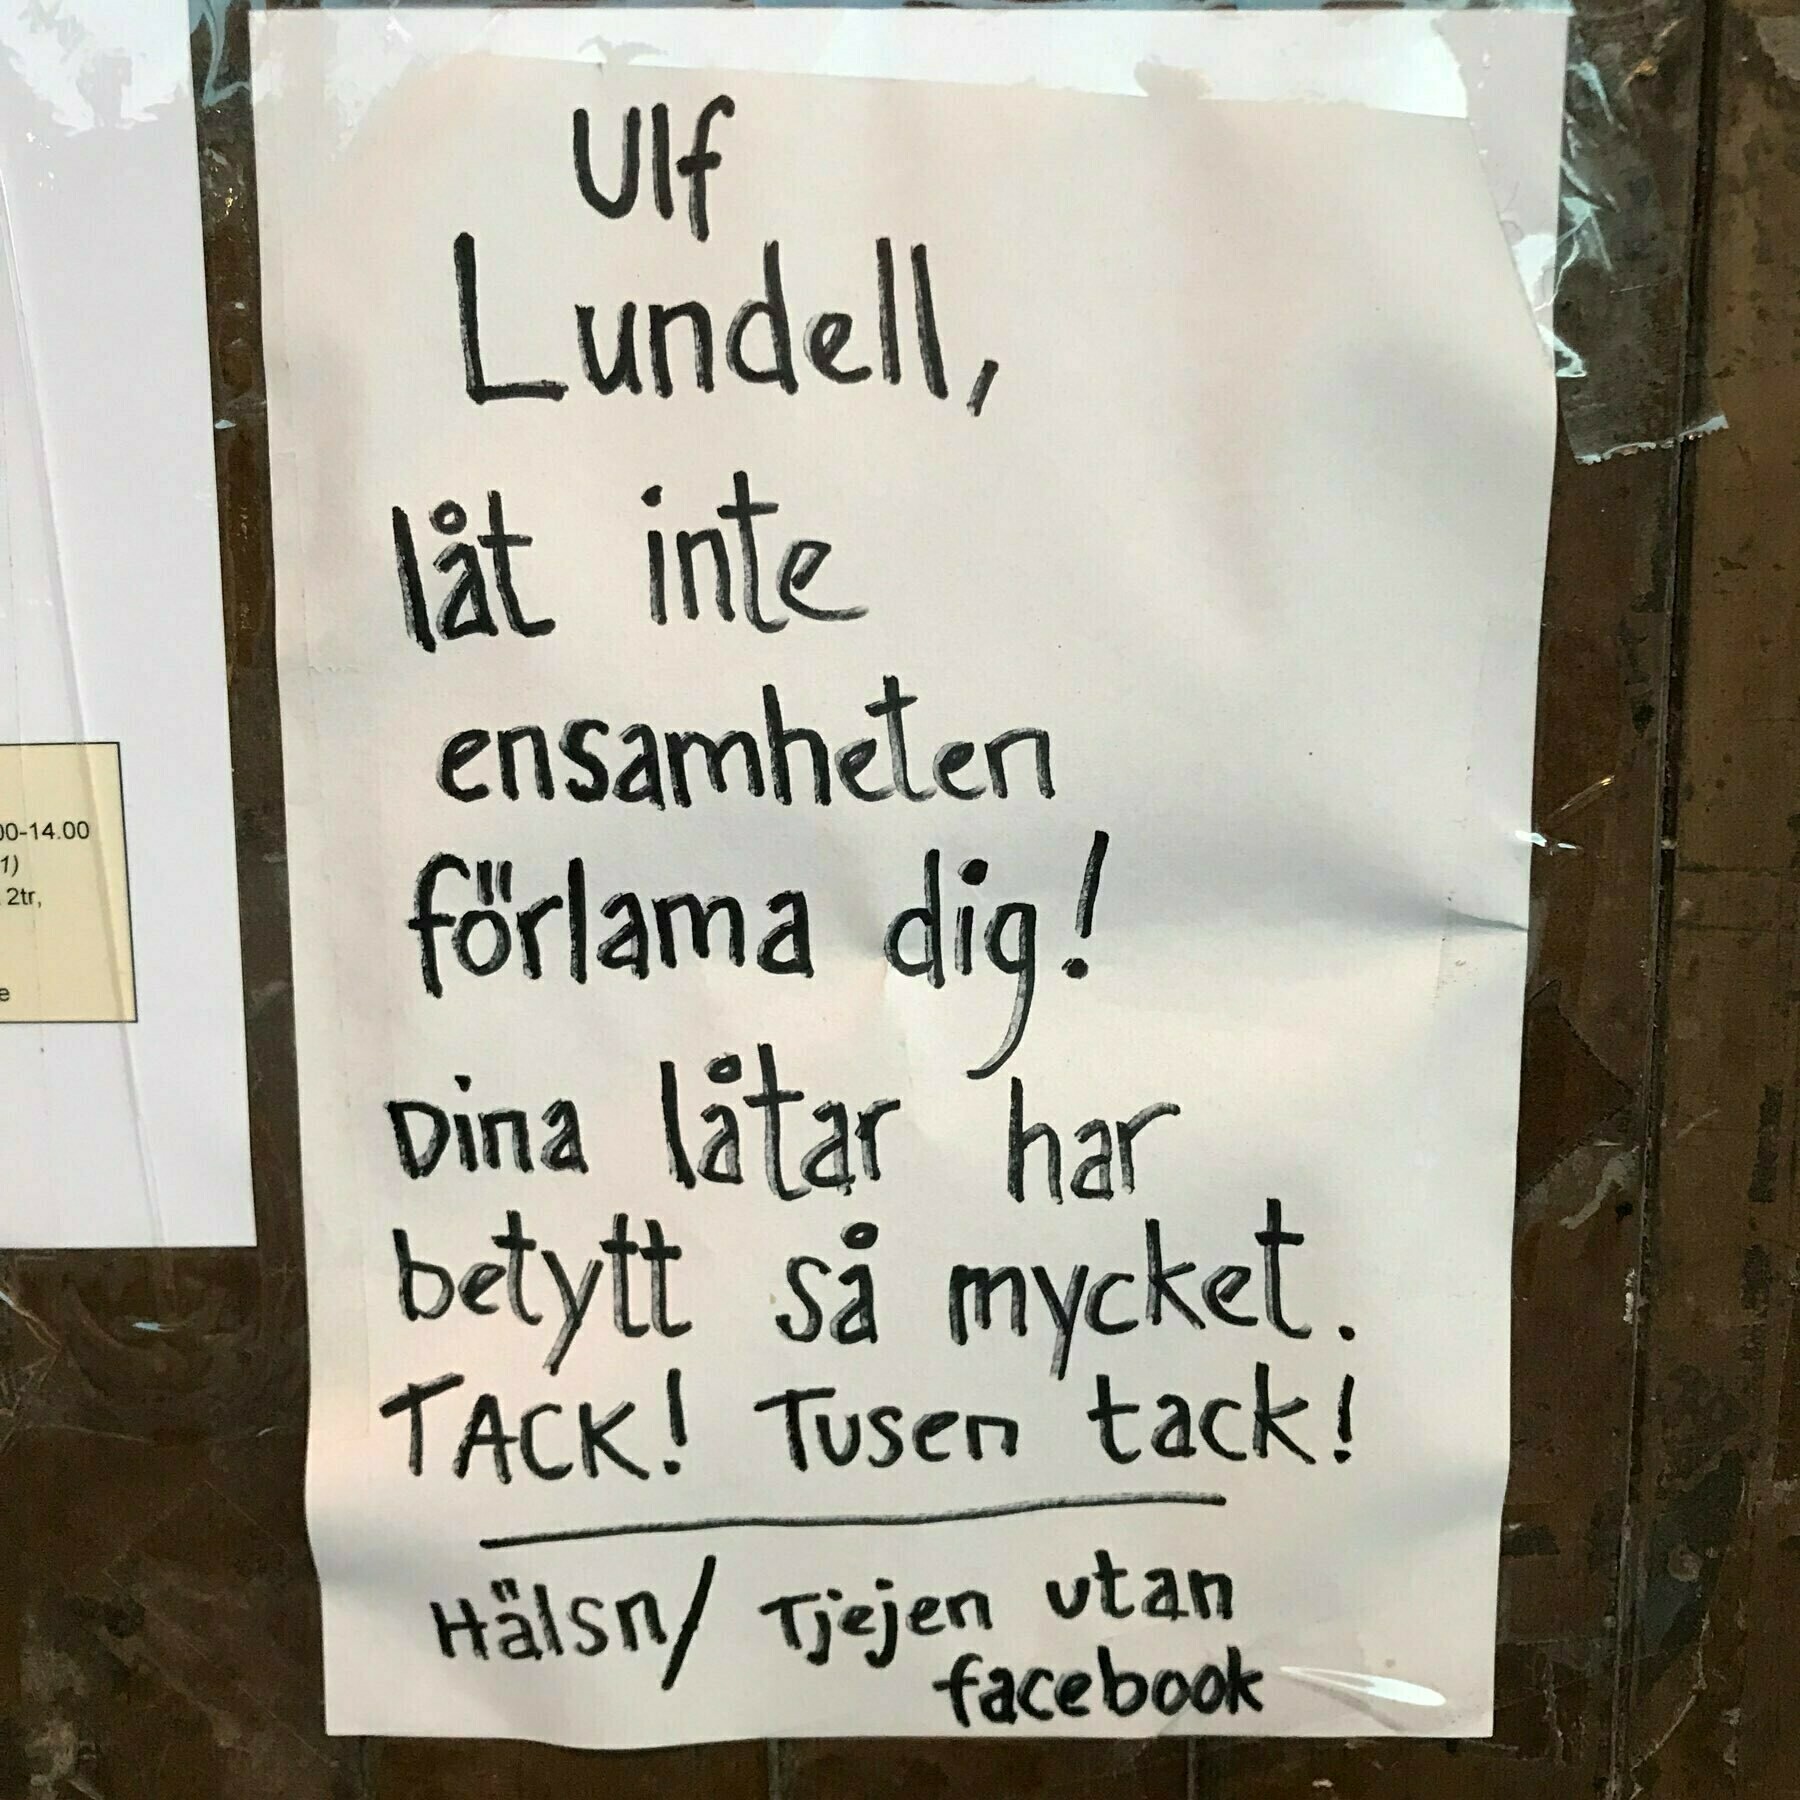 Ulf
Lundell,
låt inte
ensamheten
förlama dig!
Dina låtar har
betytt så mycket.
TACK! Tusen tack!
Hälsn/ Tjejen utan
facebook
00-14.00
1)
2tr,
e